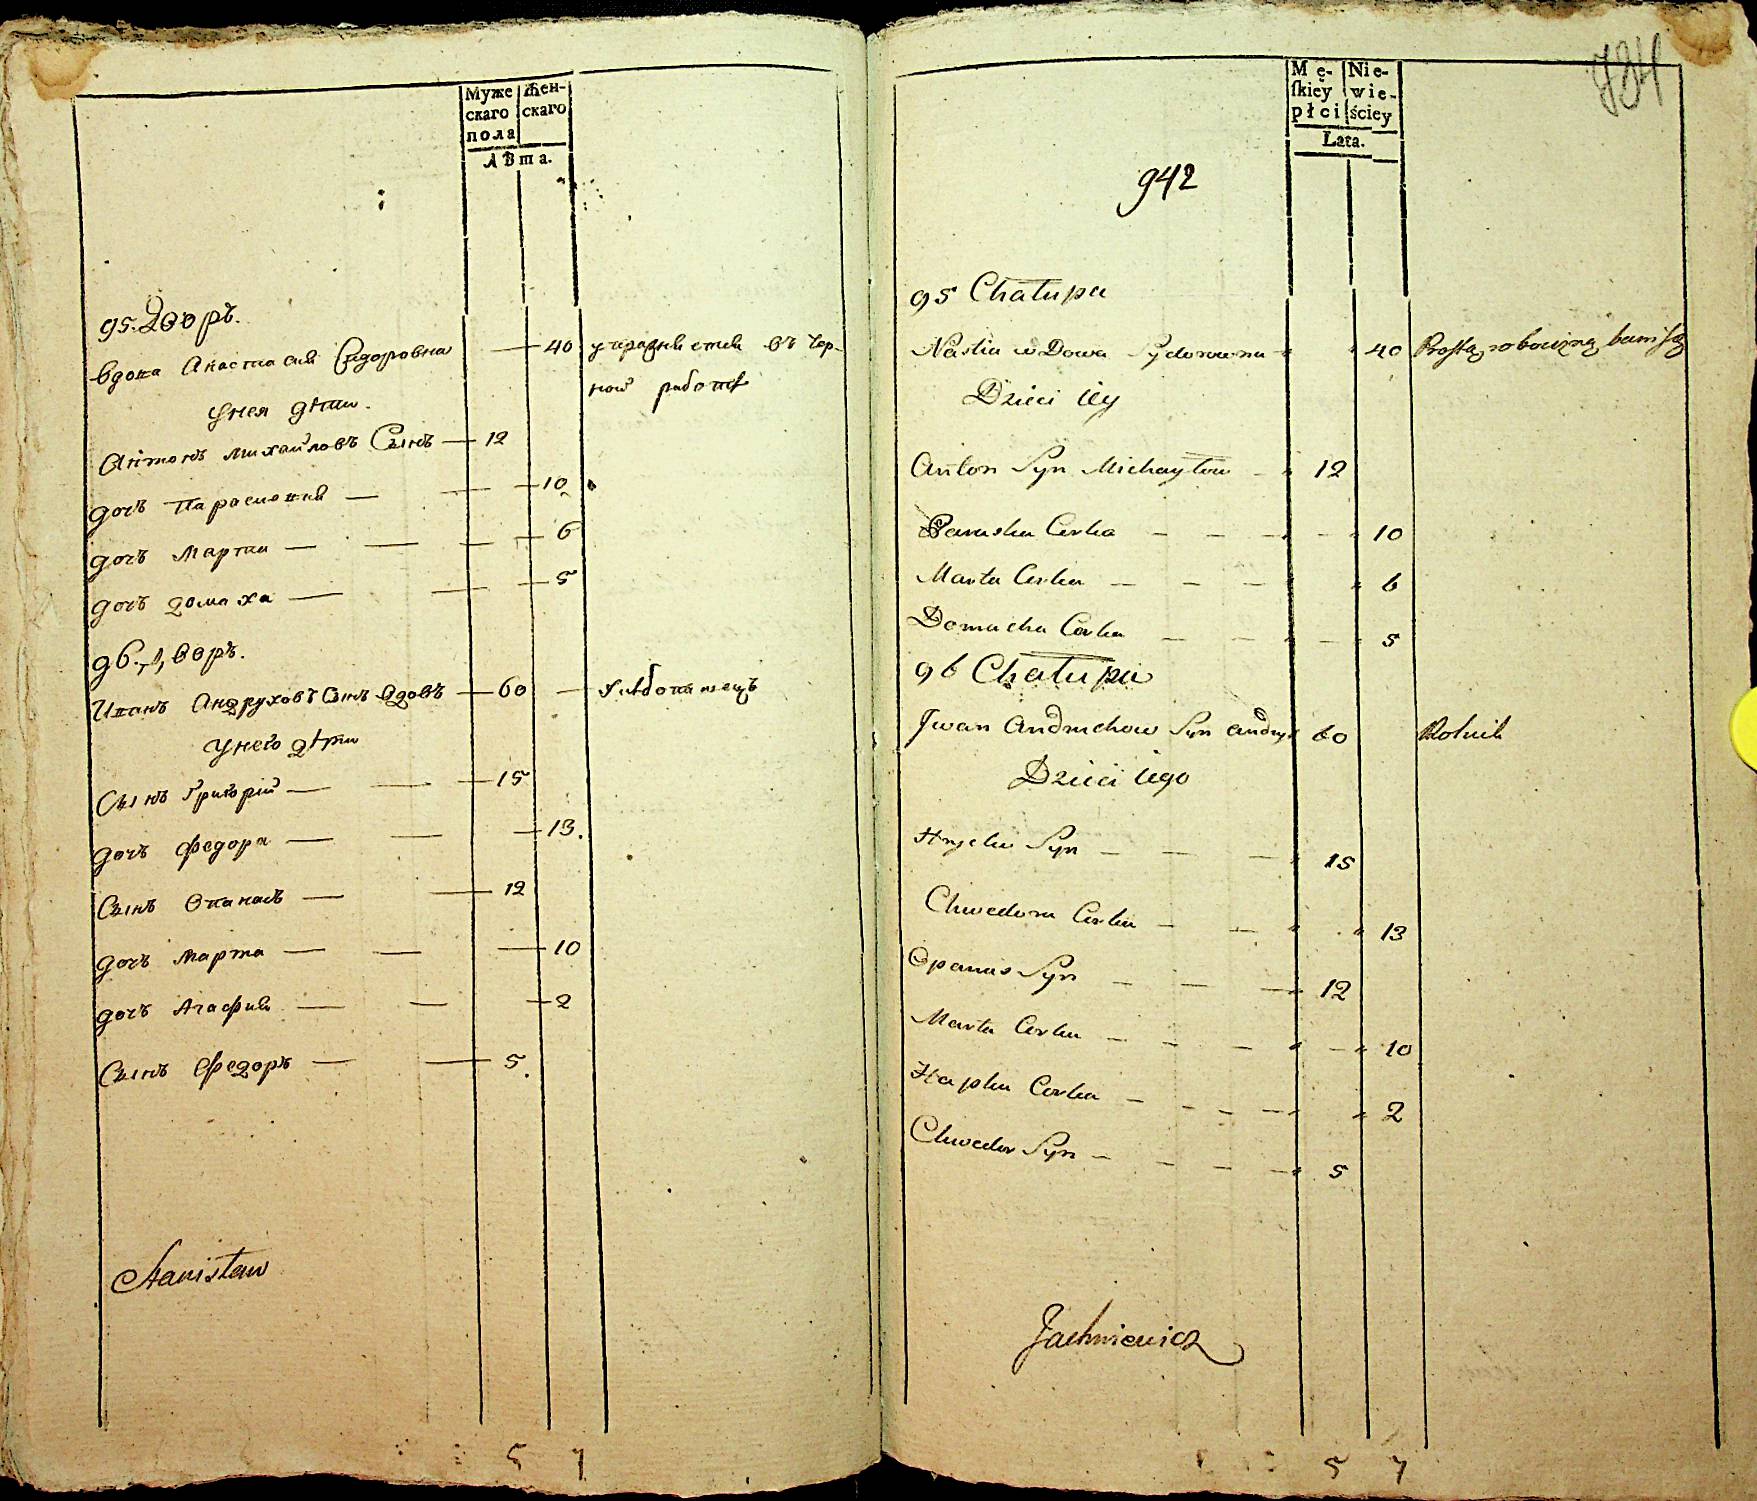 Муже Жен-
скаго скаго
пола
Лѣта.
95. Дворъ.
вдова Анастасия Сидоровна 40 упражняется въ чер-
ной работѣ
у нея дѣти.
Антонъ Михайловъ Сынъ 12
дочь Парасковия 10
дочь Марта 6
дочь Домаха 5
96. Дворъ.
Иванъ Андруховъ Сынъ вдовъ 60 хлѣбопашецъ
у него дѣти
Сынъ Григорій 15
дочь Федора 13.
Сынъ Опанасъ 12
дочь Марта 10
дочь Агафия 2
Сынъ Федоръ 5.
Stanisław
5 7
734
Mę- Nie-
ſkiey wie-
płci ściey
Lata.
942
95 Chałupa
Nastia wdowa Sydorowna 40 Prostą robocizną bawi się
Dzieci iey
Anton Syn Michayłow 12
Paraska Corka 10
Marta Corka 6
Domacha Corka 5
96 Chałupa
Jwan Andruchow Syn 60 Rolnik
Dzieci iego
Hryćko Syn 15
Chwedora Corka 13
Opanas Syn 12
Marta Corka 10
Hapka Corka 2
Chwedor Syn 5
Jachniewicz
5 7